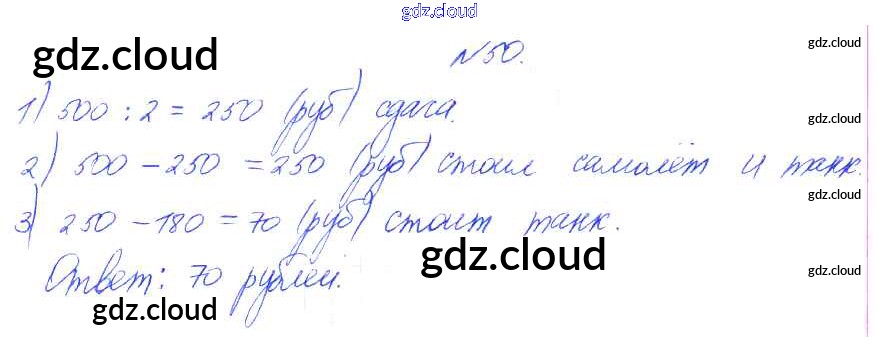 gdz.cloud
gdz.cloud
№50.
gdz.cloud
1) 500 : 2 = 250 (руб) сдача.
gdz.cloud
2) 500 - 250 = 250 (руб) стоил самолёт и танк.
gdz.cloud
3) 250 - 180 = 70 (руб) стоит танк.
gdz.cloud
gdz.cloud
Ответ: 70 рублей.
gdz.cloud
gdz.cloud